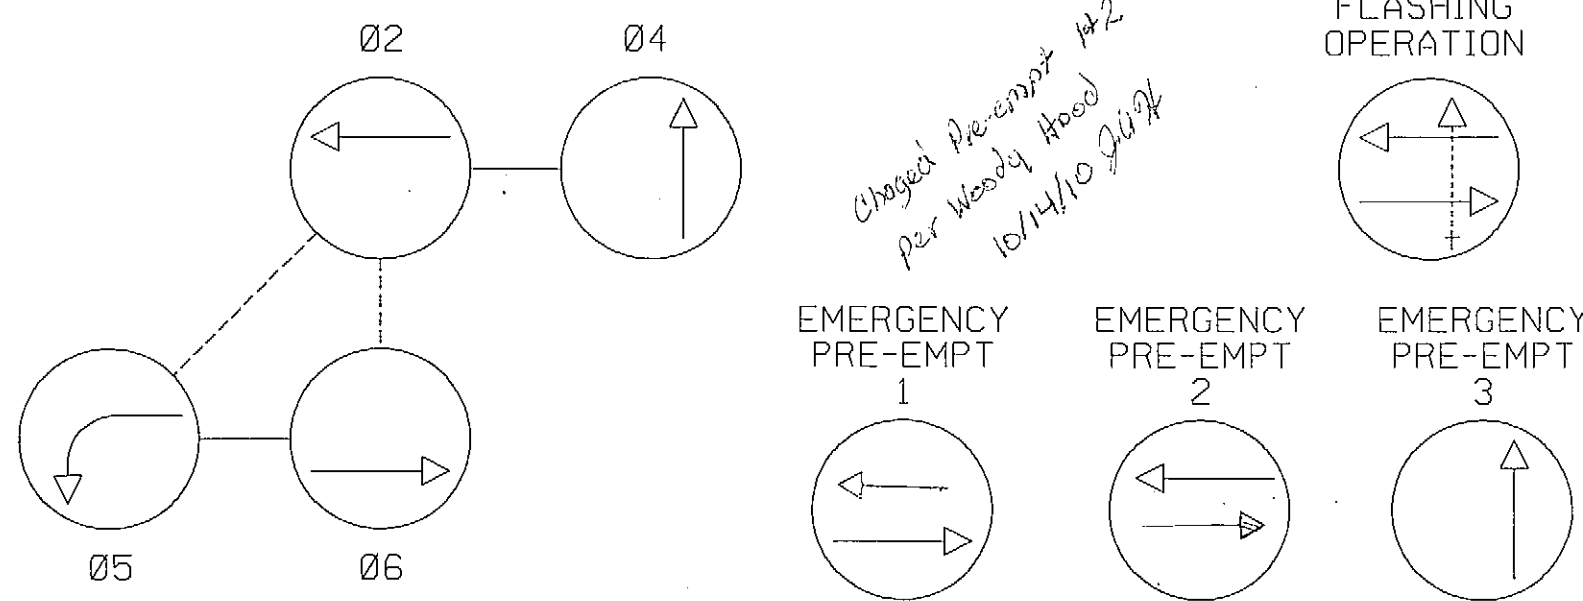 Ø2
Ø4
Chaged Pre-empt 1+2
per Woody Hood
10/14/10
FLASHING
OPERATION
EMERGENCY
PRE-EMPT
1
EMERGENCY
PRE-EMPT
2
EMERGENCY
PRE-EMPT
3
Ø5
Ø6